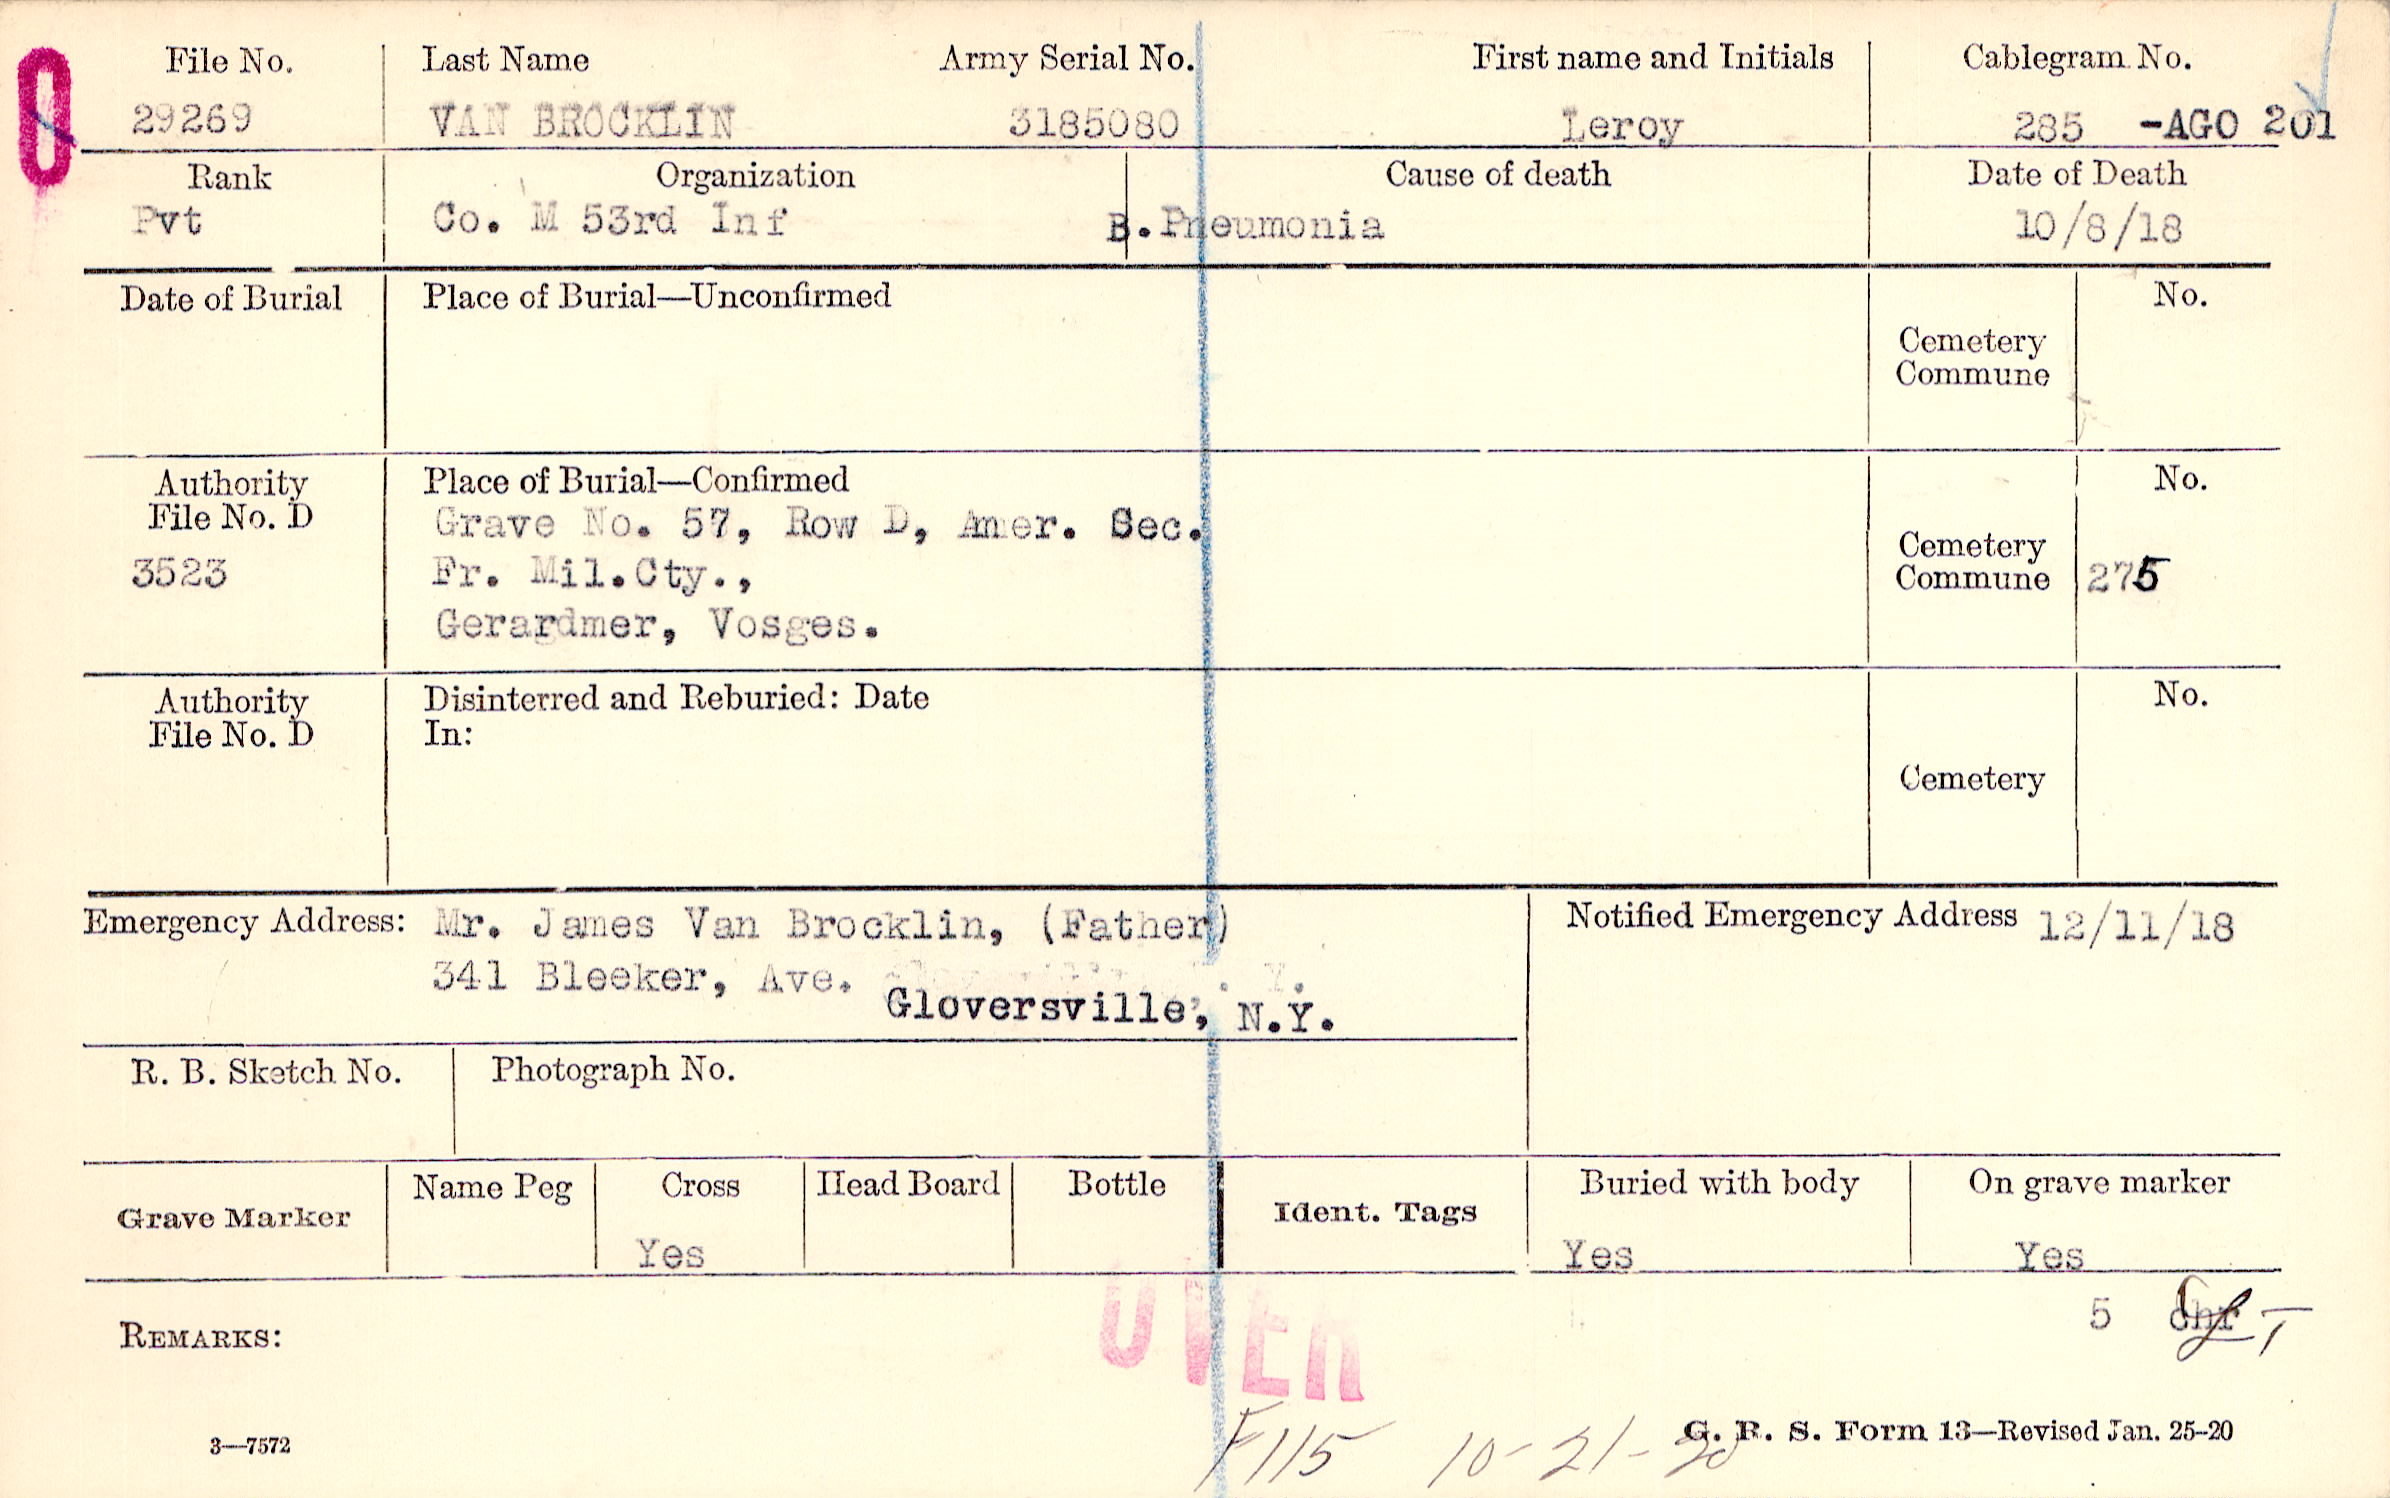 File No. Last Name Army Serial No. First name and Initials Cablegram No.
29269 VAN BROCKLIN 3185080 Leroy 285 -AGO 201
Rank Organization Cause of death Date of Death
Pvt Co. M 53rd Inf B.Pneumonia 10/8/18
Date of Burial Place of Burial—Unconfirmed No.
Cemetery
Commune
Authority Place of Burial—Confirmed No.
File No. D Grave No. 57, Row D, Amer. Sec.
3523 Fr. Mil.Cty., Cemetery
Commune 275
Gerardmer, Vosges.
Authority Disinterred and Reburied: Date No.
File No. D In:
Cemetery
Emergency Address: Mr. James Van Brocklin, (Father) Notified Emergency Address 12/11/18
341 Bleeker, Ave.
Gloversville, N.Y.
R. B. Sketch No. Photograph No.
Grave Marker Name Peg Cross Head Board Bottle Ident. Tags Buried with body On grave marker
Yes Yes Yes
5 chr
REMARKS: OVER
F115 10-21-20
3—7572 G. R. S. Form 13—Revised Jan. 25-20